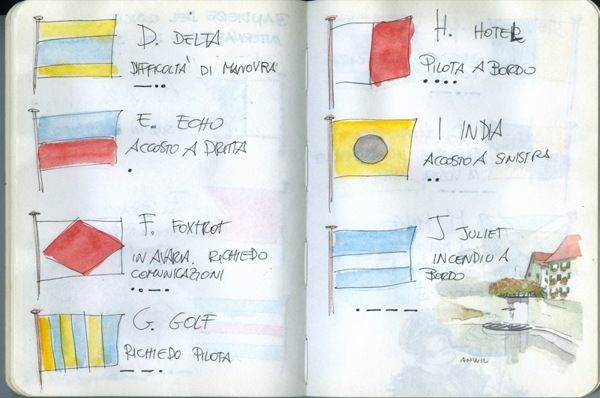 D. DELTA
DIFFICOLTÀ DI MANOVRA
—··
E. ECHO
ACCOSTO A DRITTA
·
F. FOXTROT
IN AVARIA. RICHIEDO
COMUNICAZIONI
··—·
G. GOLF
RICHIEDO PILOTA
——·
H. HOTEL
PILOTA A BORDO
····
I INDIA
ACCOSTO A SINISTRA
··
J JULIET
INCENDIO A
BORDO
·———
ANWIL